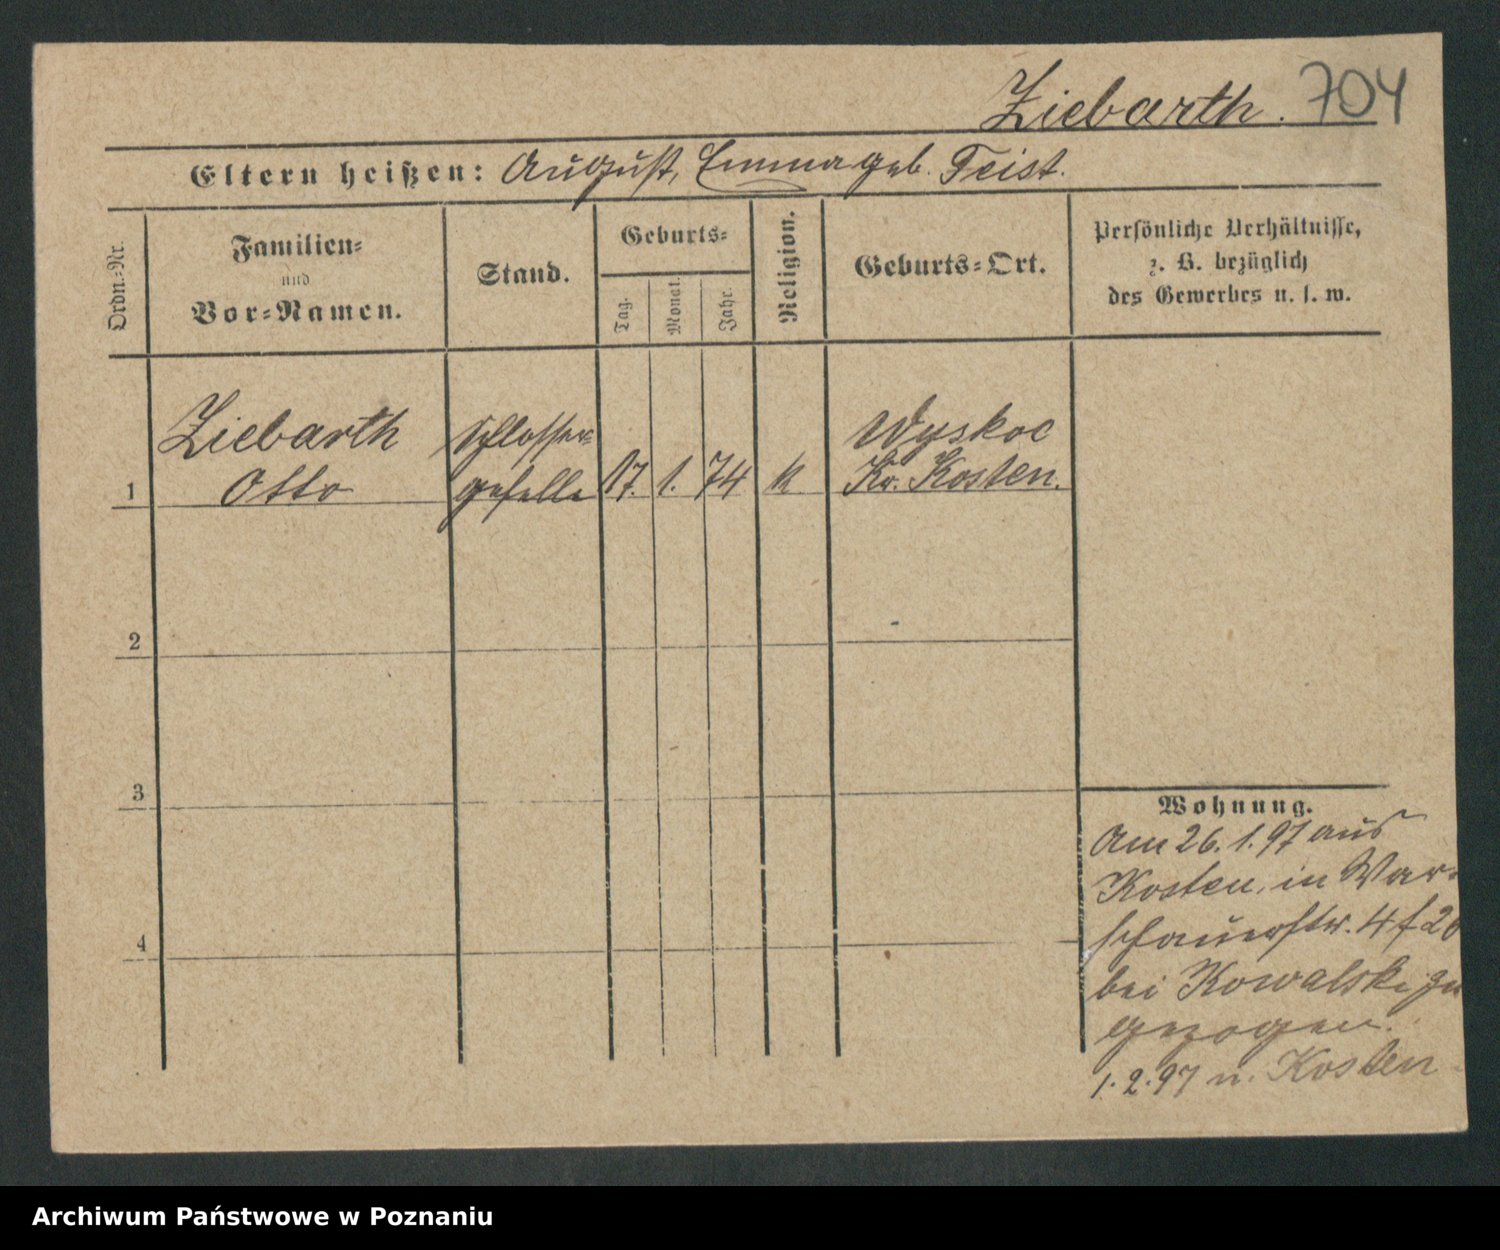 Ziebarth. 704
Eltern heißen: August, Emma geb. Feist.
Ordn.-Nr.
Familien-
und
Vor-Namen.
Stand.
Geburts-
Tag.
Monat.
Jahr.
Religion.
Geburts-Ort.
Persönliche Verhältnisse,
z. B. bezüglich
des Gewerbes u. s. w.
Ziebarth
Otto
Schlosser-
geselle
1
17. 1. 74
k
Wyskoc
Kr. Kosten.
2
3
4
Wohnung.
Am 26. 1. 97 aus
Kosten, in War-
schauerstr. 4 f 26
bei Kowalski zu
gezogen.
1. 2. 97 n. Kosten
Archiwum Państwowe w Poznaniu